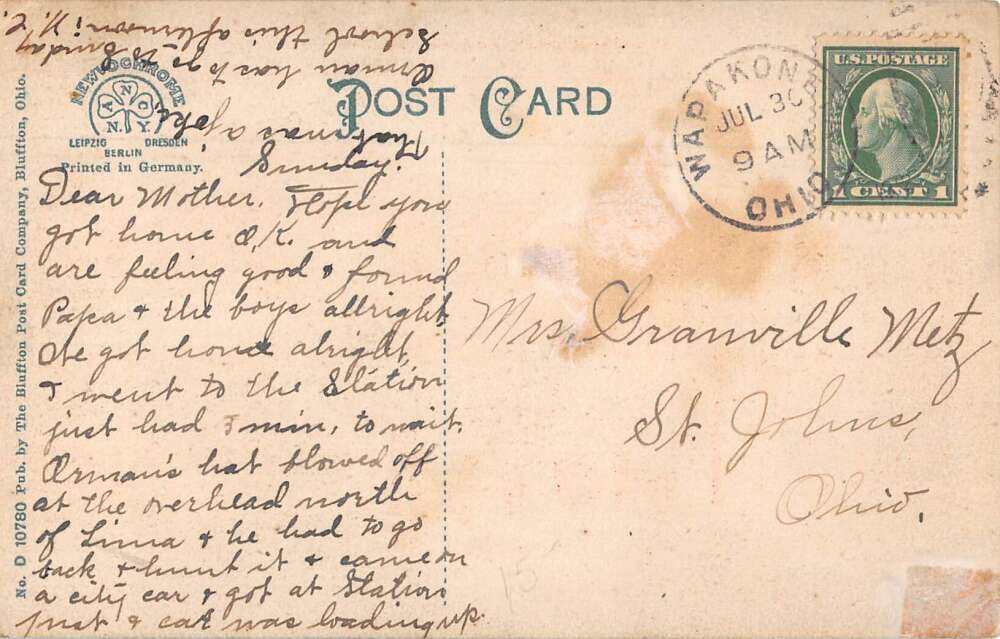 No. D 10780 Pub. by The Bluffton Post Card Company, Bluffton, Ohio.
NEWVOCHROME
A N C
N. Y.
LEIPZIG DRESDEN
BERLIN
Printed in Germany.
POST CARD
WAPAKONETA
JUL 30
9 AM
OHIO
U.S. POSTAGE
1 CENT 1
Sunday.
Dear Mother. Hope you
got home O.K. and
are feeling good & found
Papa & the boys allright,
We got home alright,
& went to the Station
just had 5 min, to wait.
Orman's hat blowed off
at the overhead north
of Lima & he had to go
back & hunt it & came on
a city car & got at Station
just & car was loading up.
That was a joke.
Orman has to go to Sunday
School this afternoon!
Mrs. Granville Metz
St. Johns,
Ohio.
15